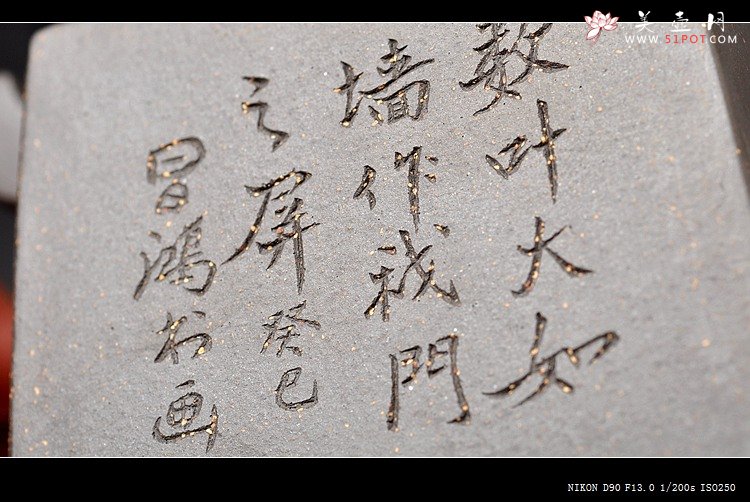 美壶网
WWW.51POT.COM
数叶大如
墙作我門
之屏癸巳
冒鴻书画
NIKON D90 F13.0 1/200s ISO250